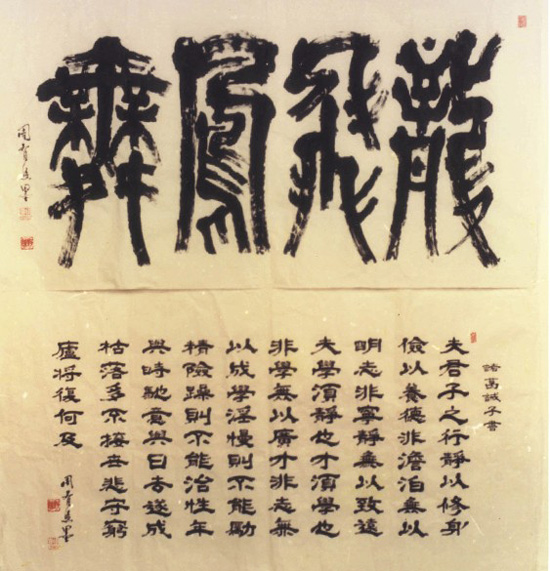 龍飛鳳舞
周墨
諸葛誡子書
夫君子之行靜以修身
儉以養德非澹泊無以
明志非寧靜無以致遠
夫學須靜也才須學也
非學無以廣才非志無
以成學淫慢則不能勵
精險躁則不能治性年
與時馳意與日去遂成
枯落多不接世悲守窮
廬將復何及
周墨